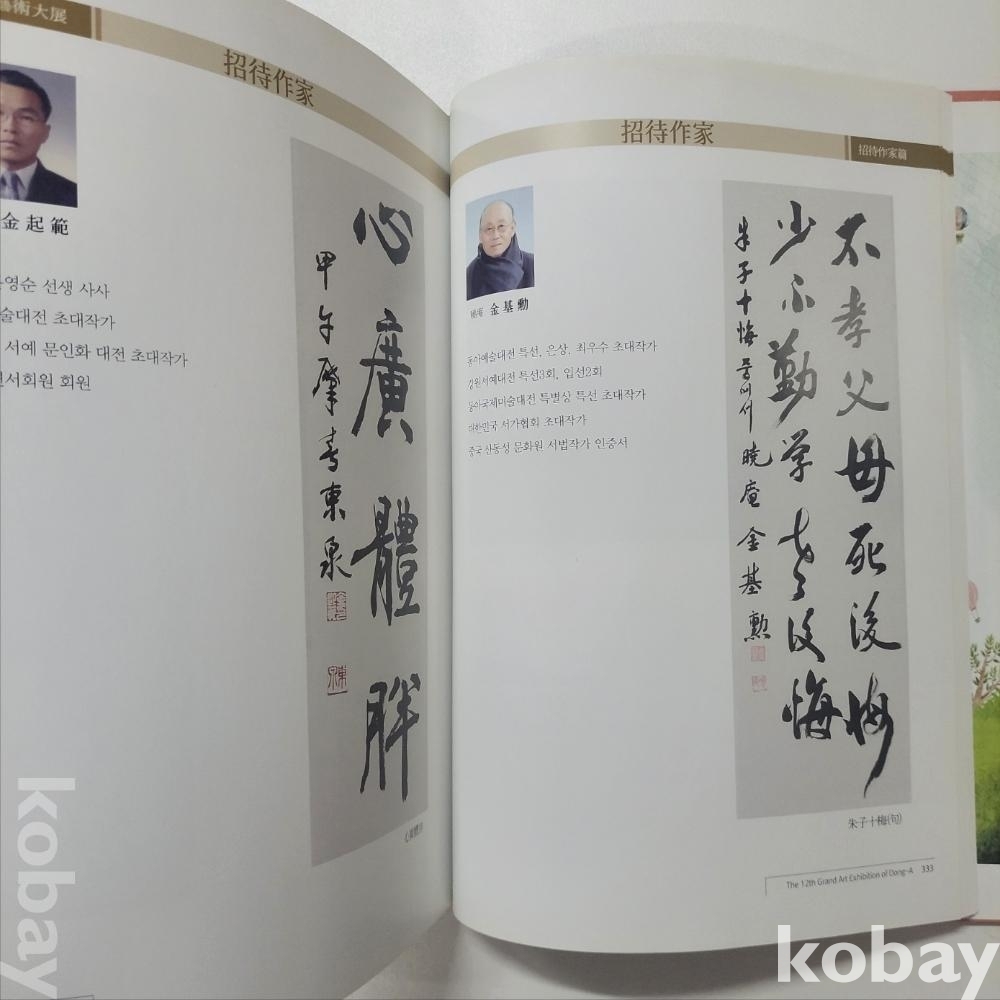 藝術大展
招待作家
金起範
영순 선생 사사
술대전 초대작가
서예 문인화 대전 초대작가
서회원 회원
心廣體胖
甲午肇春東泉
招待作家
招待作家篇
金基勳
동아예술대전 특선, 은상, 최우수 초대작가
강원서예대전 특선3회, 입선2회
동아국제미술대전 특별상 특선 초대작가
대한민국 서가협회 초대작가
중국 산동성 문화원 서법작가 인증서
不孝父母死後悔
少不勤学老後悔
朱子十悔 句 暁庵 金基勳
朱子十悔(句)
The 12th Grand Art Exhibition of Dong-A 333
kobay
kobay